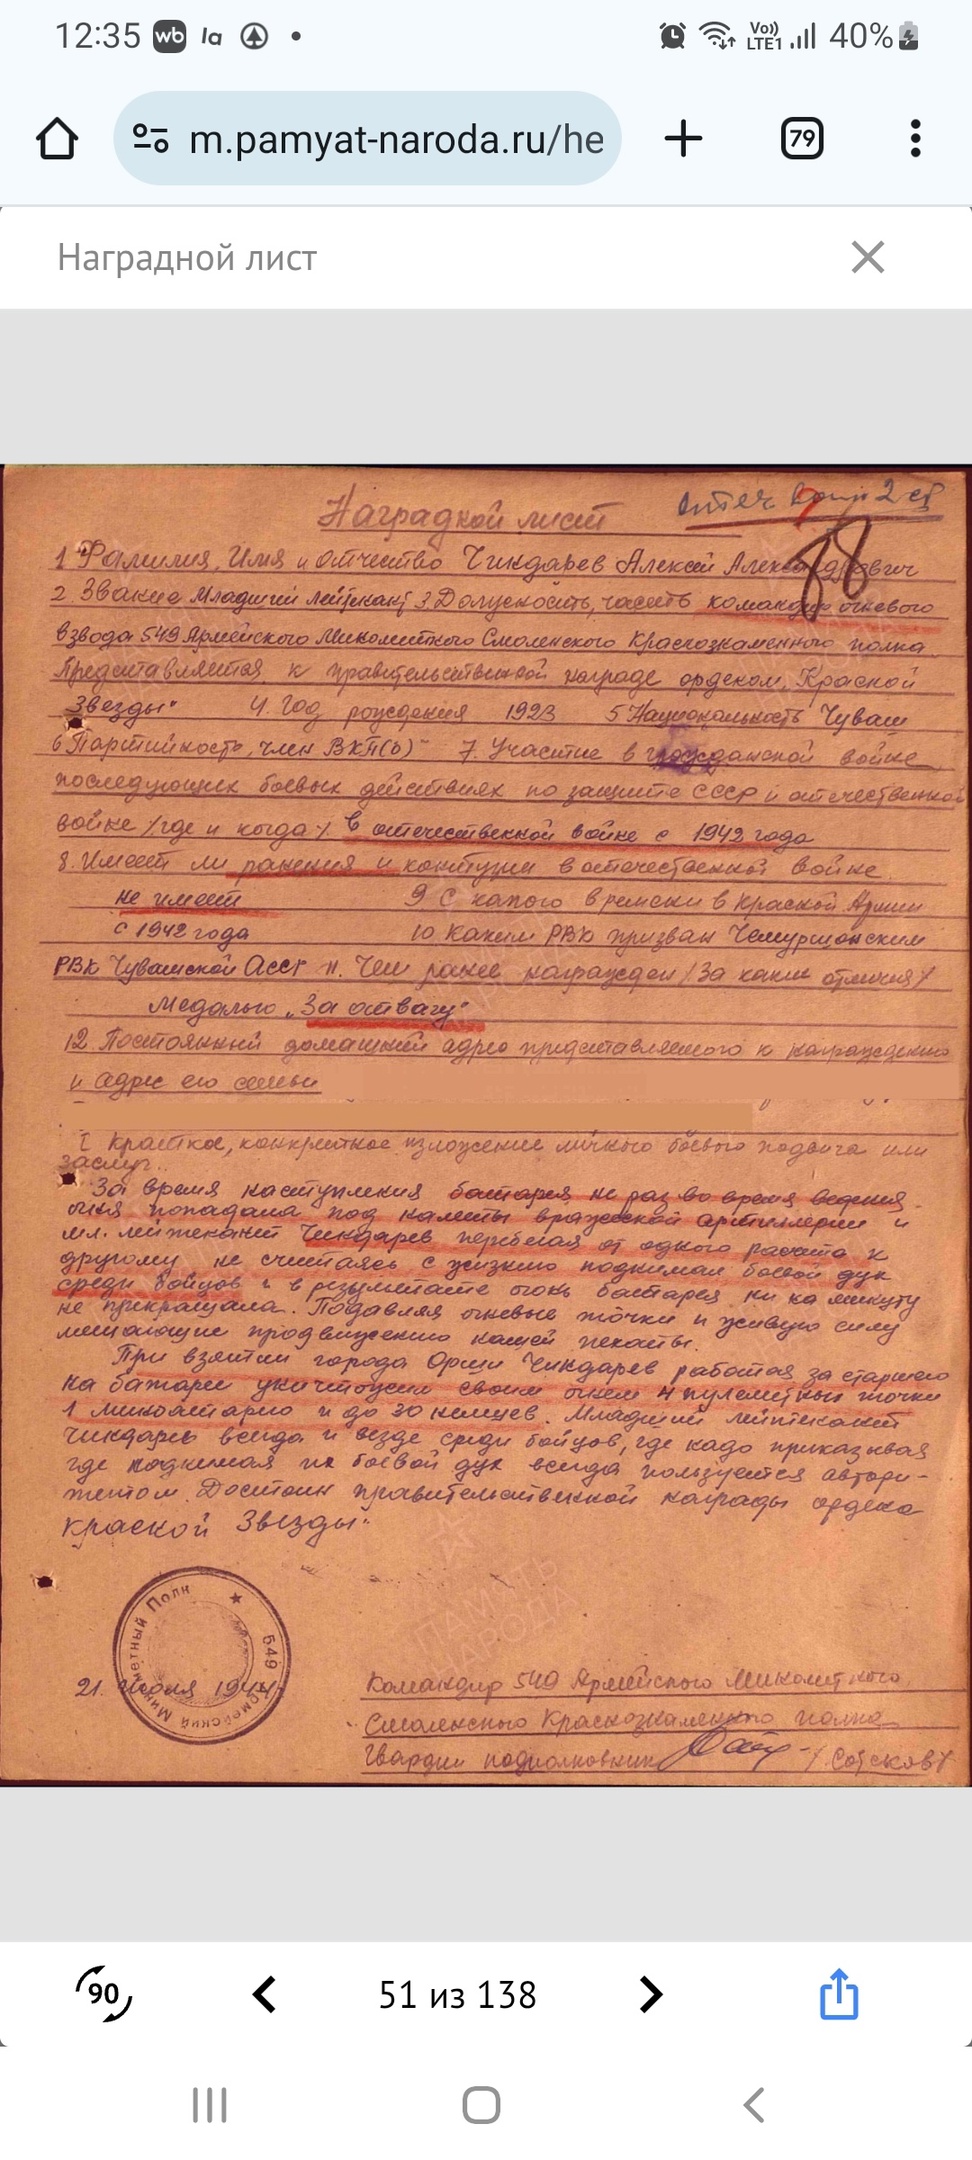 12:35 wb la
Vo)) LTE1 40%
m.pamyat-naroda.ru/he
79
Наградной лист
Отеч войн 2 ст
Наградной лист
88
1 Фамилия, Имя и отчество Чиндарев Алексей Александрович
2. Звание Младший лейтенант 3. Должность, часть командир огневого
взвода 549 Армейского Минометного Смоленского Краснознаменного полка
Представляется к правительственной награде орденом „Красной
Звезды" 4. Год рождения 1923 5 Национальность Чуваш
6 Партийность, член ВКП(б) 7. Участие в гражданской войне
последующих боевых действиях по защите СССР и отечественной
войне /где и когда/ в отечественной войне с 1942 года
8. Имеет ли ранения и контузии в отечественной войне
не имеет 9 С какого времени в Красной Армии
с 1942 года 10 Каким РВК призван
РВК Чувашской АССР 11. Чем ранее награжден /За какие отличия/
Медалью „За отвагу"
12. Постоянный домашний адрес представляемого к награждению
и адрес его семьи
I Краткое, конкретное изложение личного боевого подвига или
заслуг.
За время наступления батарея не раз во время ведения
огня попадала под налеты вражеской артиллерии и
мл. лейтенант Чиндарев перебегая от одного расчета к
другому не считаясь с жизнью поднимал боевой дух
среди бойцов и в результате огонь батарея ни на минуту
не прекращала. Подавляя огневые точки и живую силу
мешающие продвижению нашей пехоты.
При взятии города Орши Чиндарев работая за старшего
на батарее уничтожил своим огнем 4 пулеметных точки
1 минбатарею и до 30 немцев. Младший лейтенант
Чиндарев всегда и везде среди бойцов, где надо приказывая
где поднимая их боевой дух всегда пользуется автори-
тетом. Достоин правительственной награды ордена
Красной Звезды"
549 Армейский Минометный Полк
21. июля 1944
Командир 549 Армейского Минометного
Смоленского Краснознаменного полка
Гвардии подполковник
ПАМЯТЬ
НАРОДА
90
51 из 138